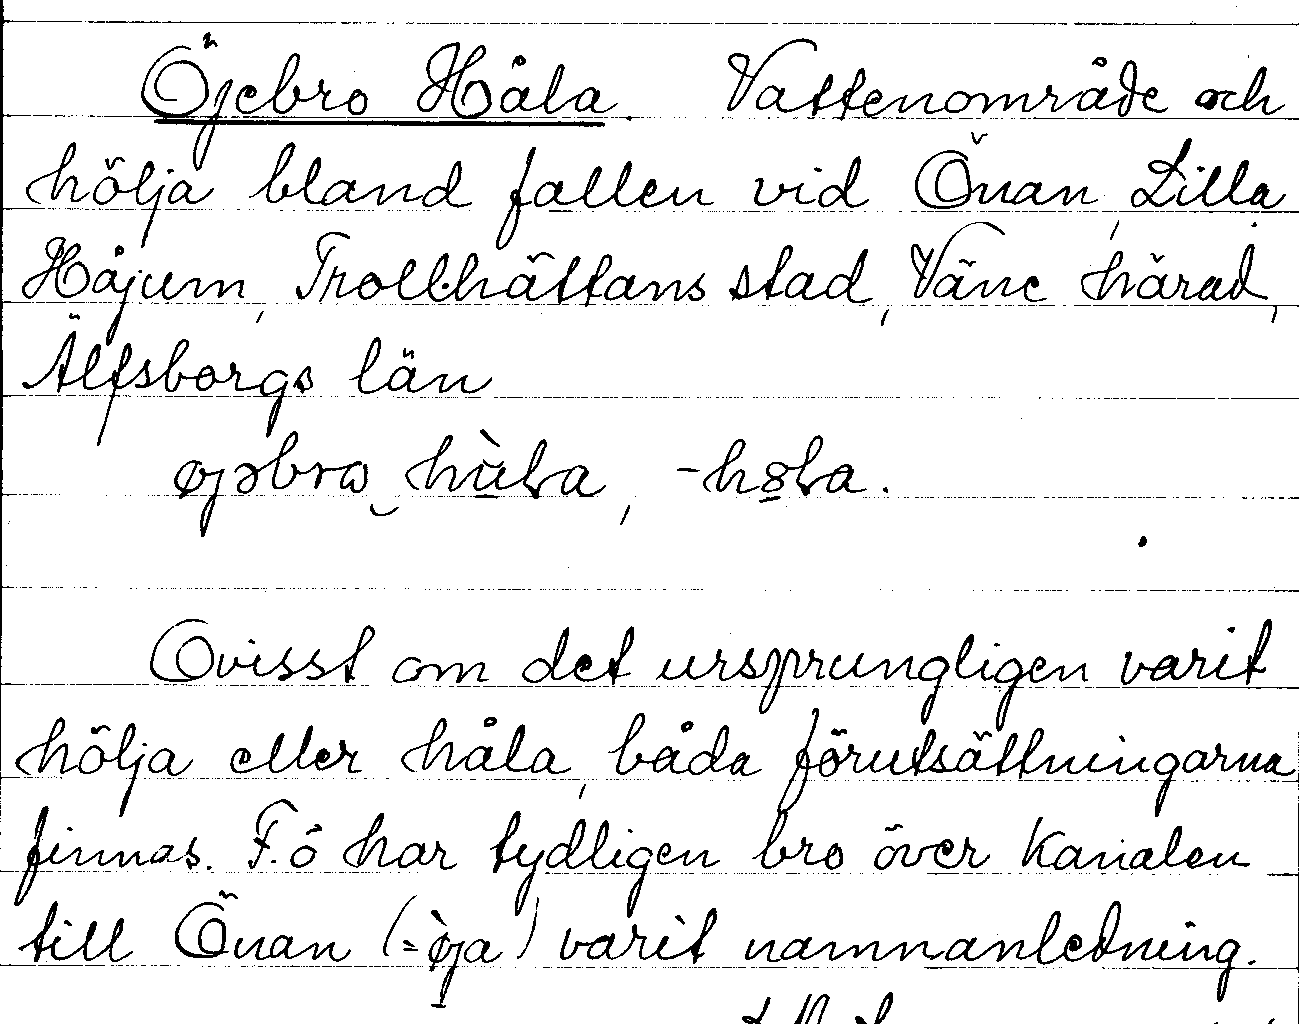 Öjebro Håla. Vattenområde och
hölja bland fallen vid Önan, Lilla
Håjum, Trollhättans stad, Väne härad,
Älfsborgs län
øjəbrω hùla, -hola.
Ovisst om det ursprungligen varit
hölja eller håla, båda förutsättningarna
finnas. F.ö har tydligen bro över Kanalen
till Önan (= ø̀ja) varit namnanledning.